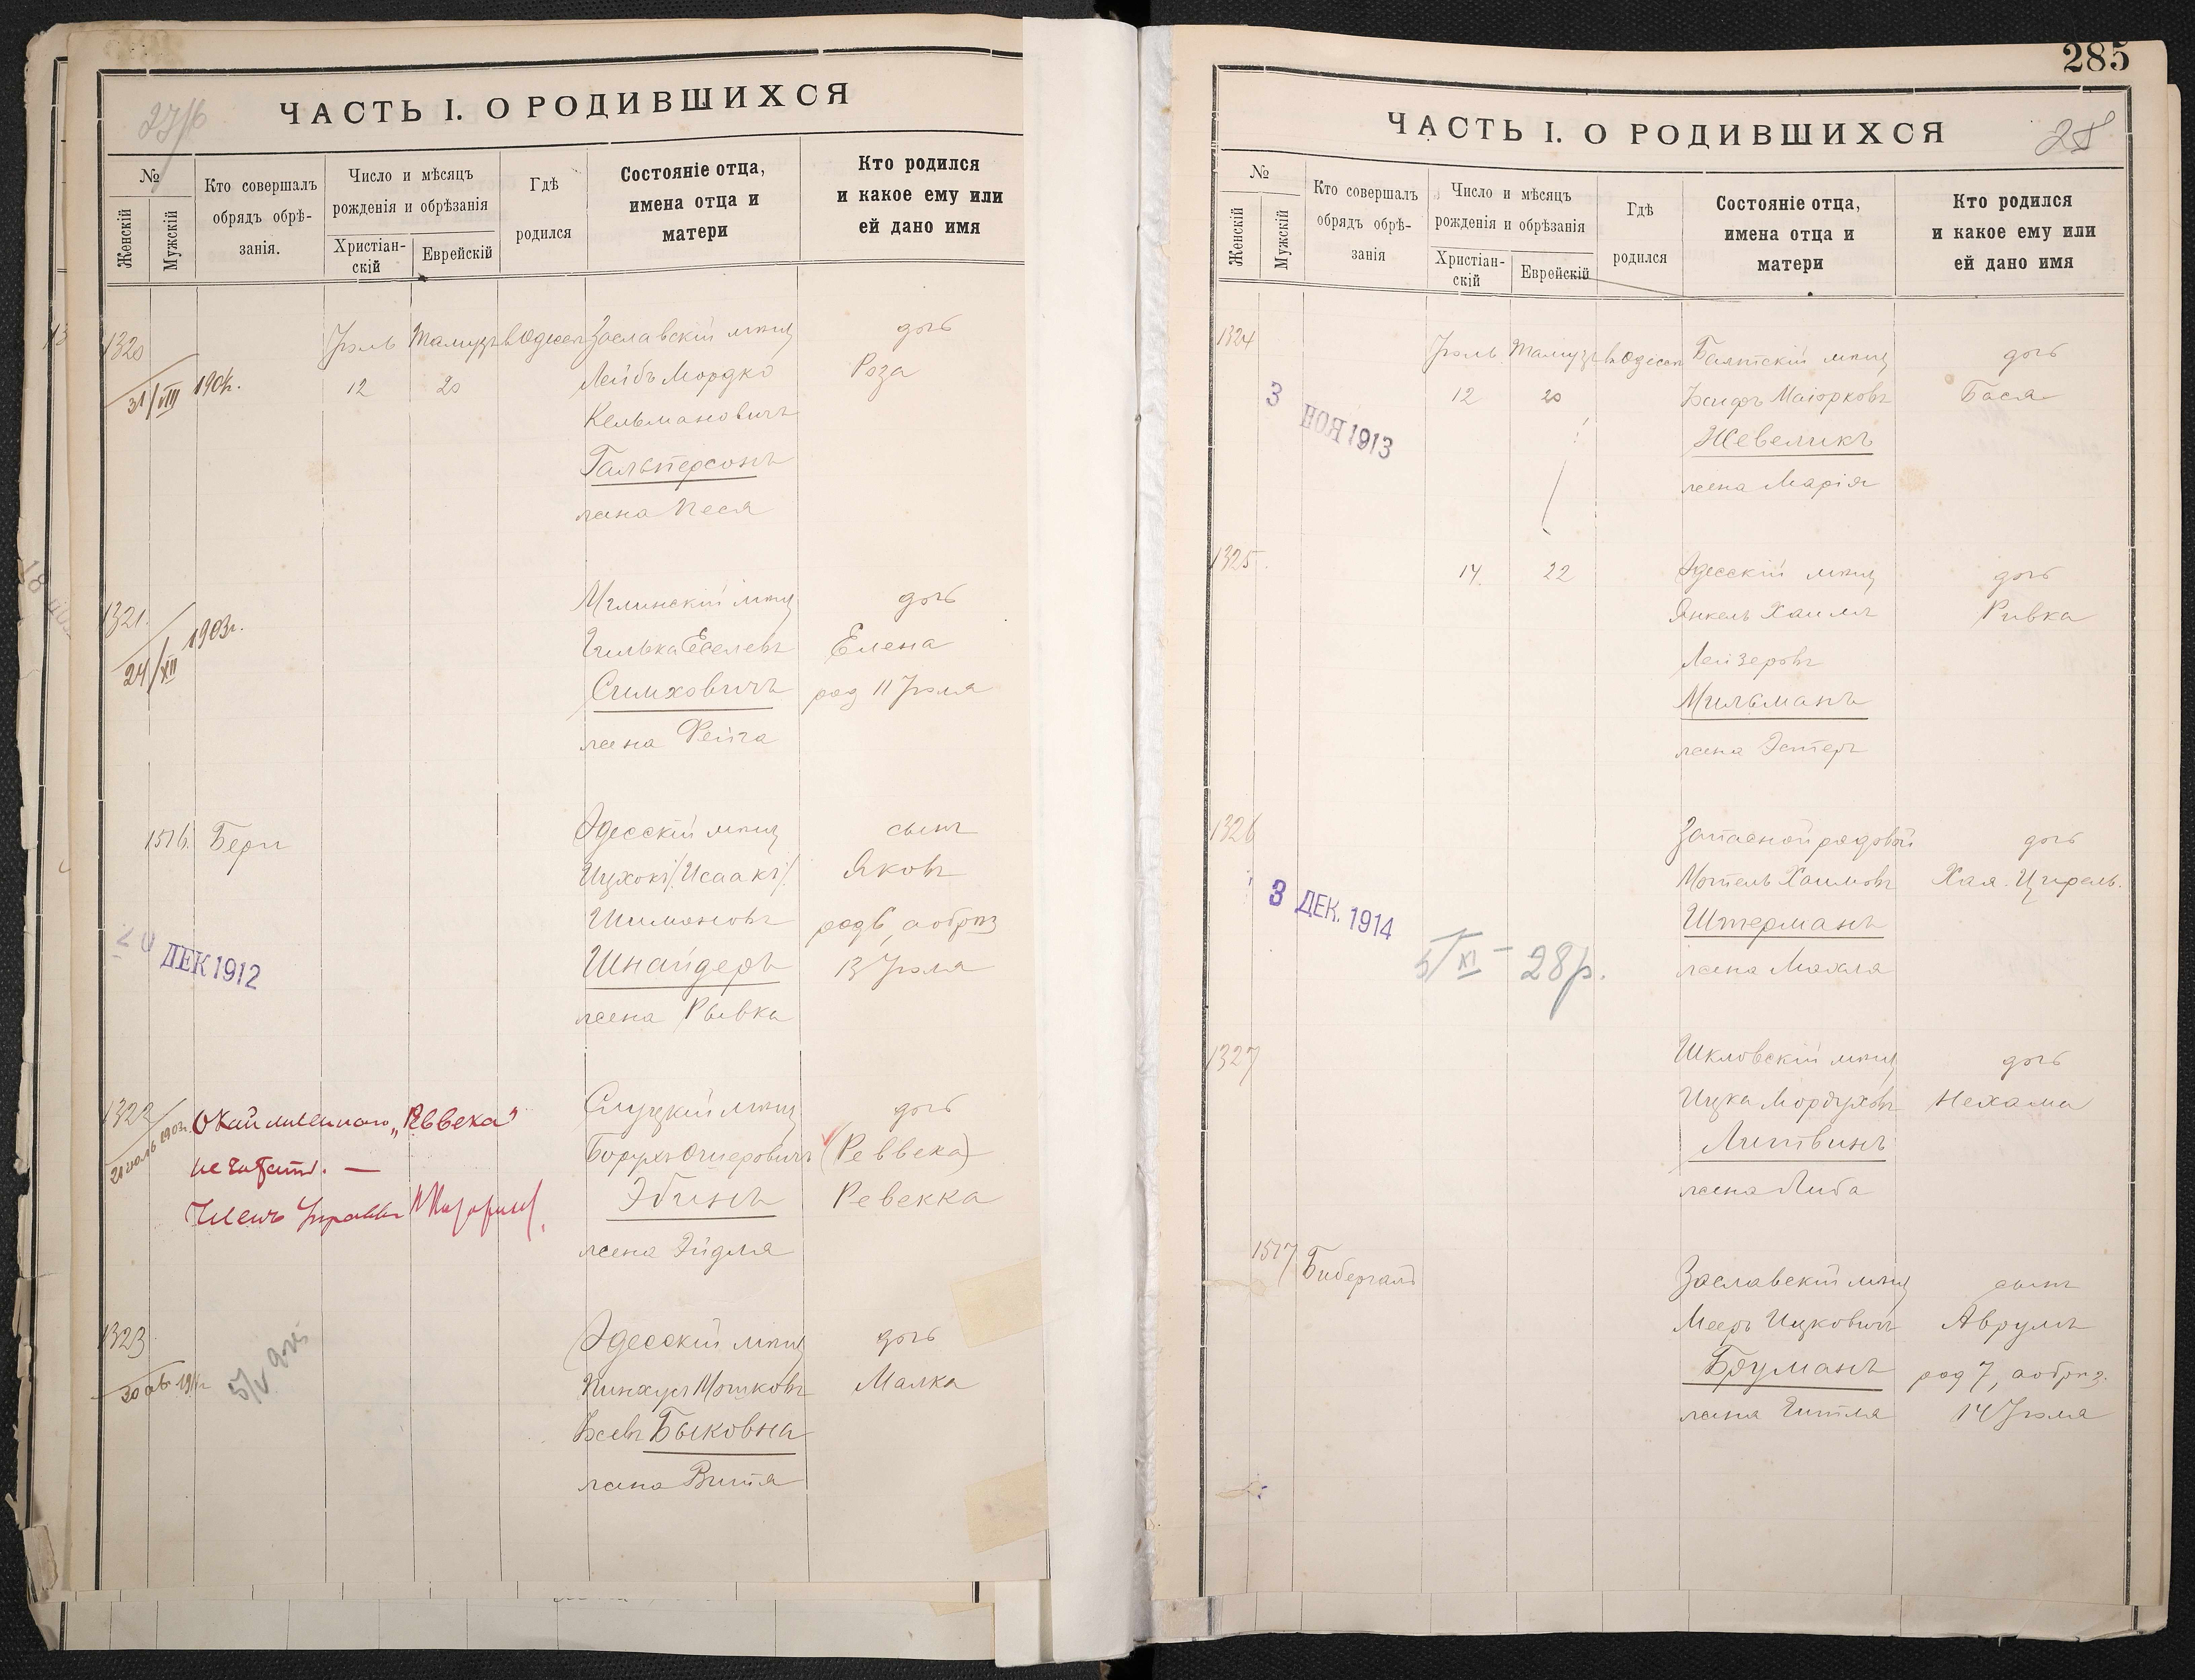 ЧАСТЬ I. О РОДИВШИХСЯ
№
Женскій
Мужскій
Кто совершалъ
обрядъ обрѣ-
занія.
Число и мѣсяцъ
рожденія и обрѣзанія
Христіан-
скій
Еврейскій
Гдѣ
родился
Состояніе отца,
имена отца и
матери
Кто родился
и какое ему или
ей дано имя
1320
31/VIII 1904г.
Іюль Тамузъ въ Одессѣ Заславскій мѣщ дочь
12 20 Лейбъ Мордко Роза
Кельмановичъ
Гальперсонъ
жена Песя
1321.
24/XII 1903г.
Мглинскій мѣщ дочь
Гилька Еселевъ Елена
Симховичъ род 11 Іюля
жена Фейга
1516. Бери
Одесскій мѣщ сынъ
Ицхокъ/Исаакъ/ Яковъ
Шимоновъ род 6, а обрѣз
Шнайдеръ 13 Іюля
жена Рывка
20 ДЕК 1912
1322
Слуцкій мѣщ дочь
Борухъ Ошеровичъ (Реввека)
Эбинъ Ревекка
жена Эйдля
„Реввека“
не читать. —
Членъ Управы
1323
Одесскій мѣщ дочь
Пинхусъ Мошковъ Малка
Быковна
жена Витя
285
ЧАСТЬ I. О РОДИВШИХСЯ
28
№
Женскій
Мужскій
Кто совершалъ
обрядъ обрѣ-
занія
Число и мѣсяцъ
рожденія и обрѣзанія
Христіан-
скій
Еврейскій
Гдѣ
родился
Состояніе отца,
имена отца и
матери
Кто родился
и какое ему или
ей дано имя
1324
Іюль Тамузъ въ Одессѣ Балтскій мѣщ дочь
12 20 Іосифъ Маіорковъ Бася
Жевеликъ
жена Марія
3 НОЯ 1913
1325
14 22 Одесскій мѣщ дочь
Янкель Хаимъ Ривка
Лейзеровъ
Мильманъ
жена Эстеръ
1326
Запасной рядовой дочь
Мотель Хаимовъ Хая Ципрель
Штерманъ
жена Махля
3 ДЕК. 1914
5/XI — 28 р.
1327
Шкловскій мѣщ дочь
Ицка Мордуховъ Нехама
Литвинъ
жена Либа
1517 Бибергалъ
Заславскій мѣщ сынъ
Мееръ Ицковичъ Аврумъ
Бруманъ род 7, а обрѣз.
жена Гитля 14 Іюля